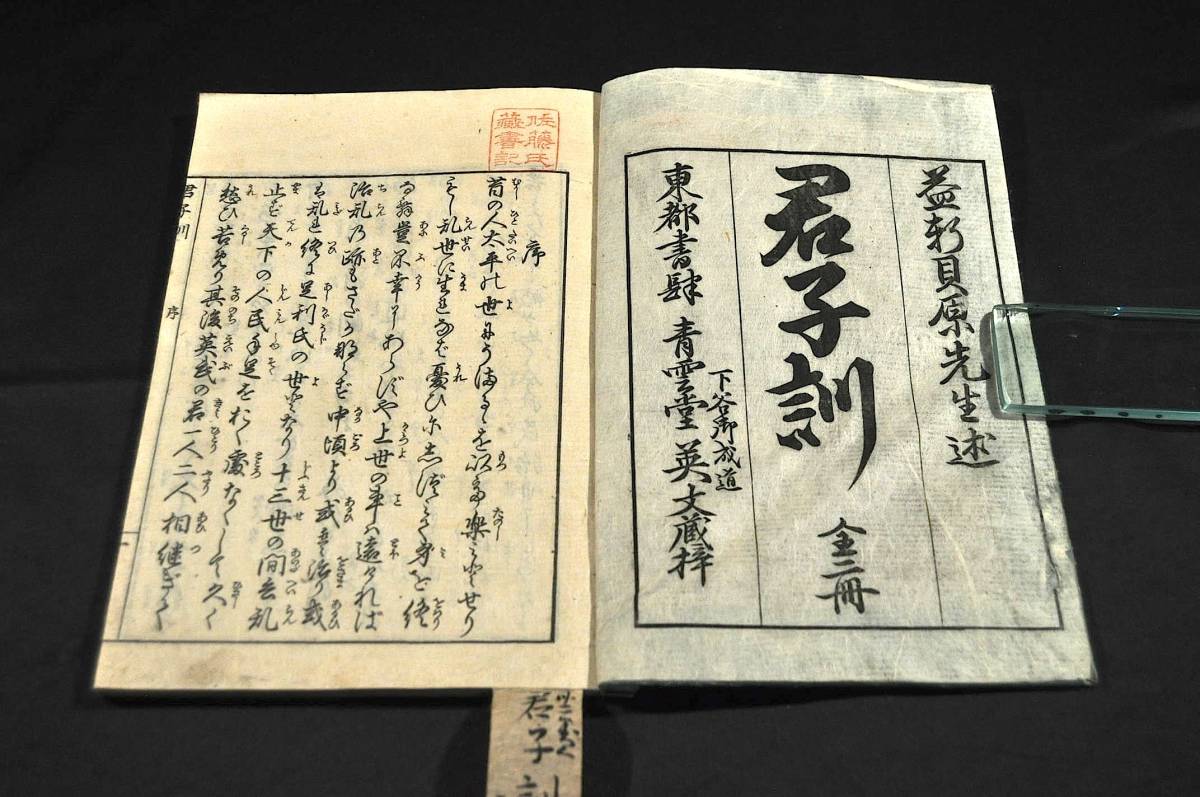 益軒貝原先生述
君子訓
全三冊
下谷御成道
東都書肆 青雲堂 英文蔵梓
佐藤氏
藏書記
序
昔の人太平の世にうまるゝを以て楽とせり
もし乱世に生れなば憂ひにしづみて身を終
る 豈不幸にあらずや上世の事は遠ければ
治乱の跡もさだかならず中頃より或は治り或
は乱れ終に足利氏の世となり十三世の間兵乱
止ず天下の人民手足をおく處なくして久く
愁ひ苦めり其後英武の君一人二人相継ぎて
君子訓 序 一
君子訓